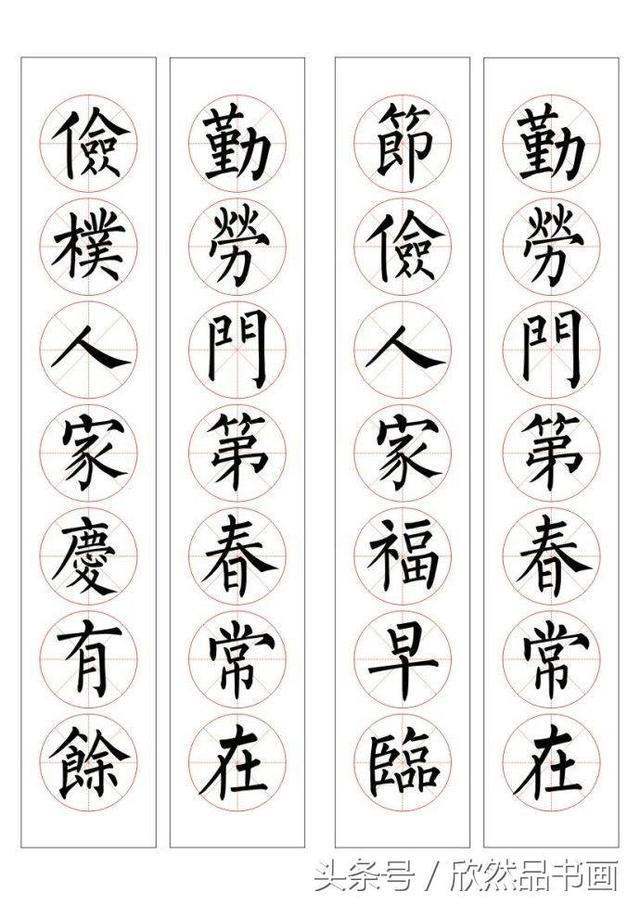 勤勞門第春常在
節儉人家福早臨
勤勞門第春常在
儉樸人家慶有餘
头条号 / 欣然品书画